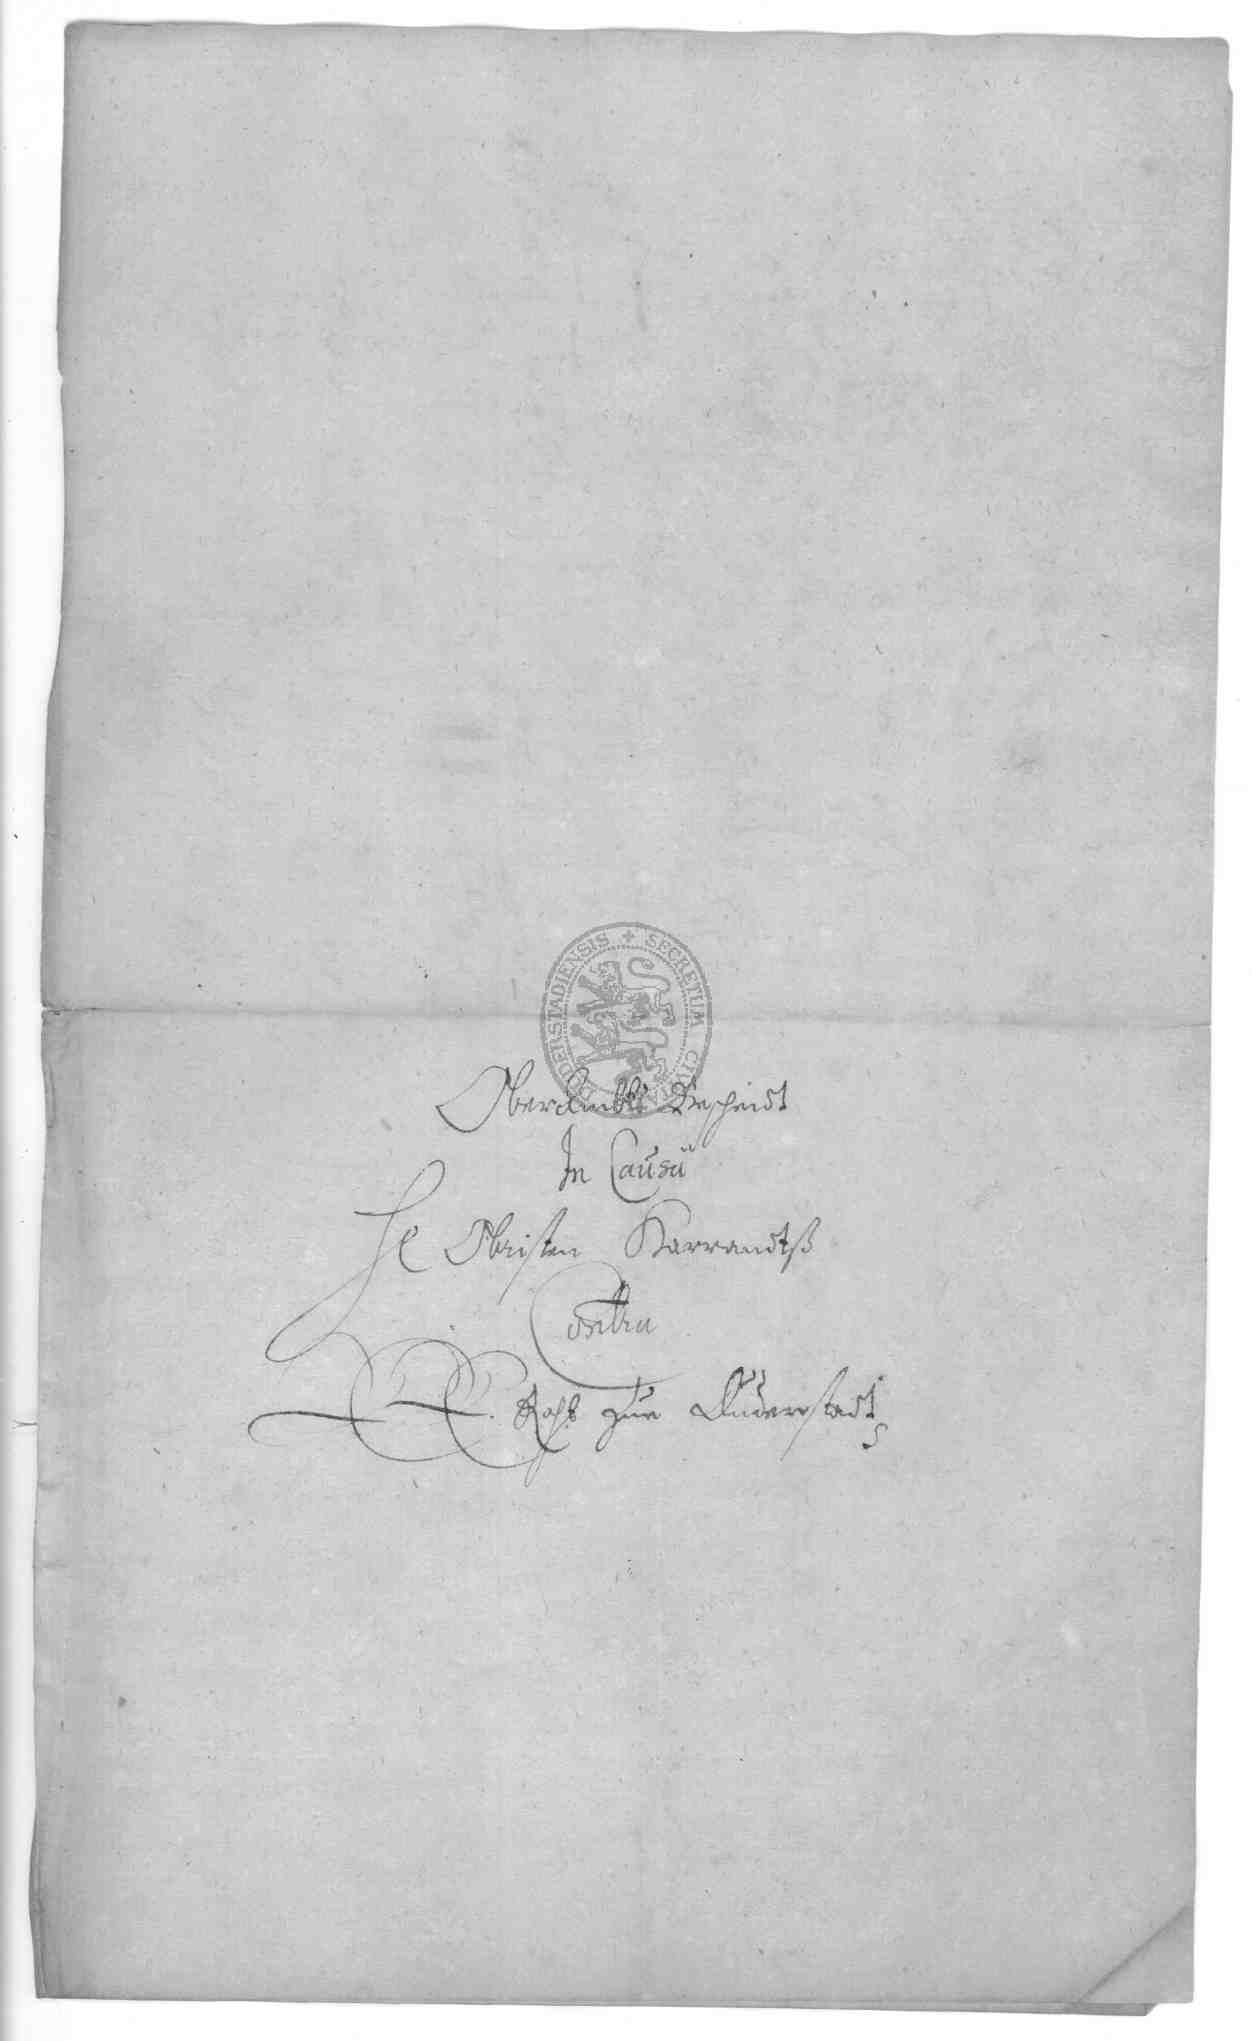 SECRETUM CIVITA DUDERSTADIENSIS
Oberambts Bescheidt
In Causa
H Obristen Karrandtß
Contra
E. E. Raht zue Duderstadt